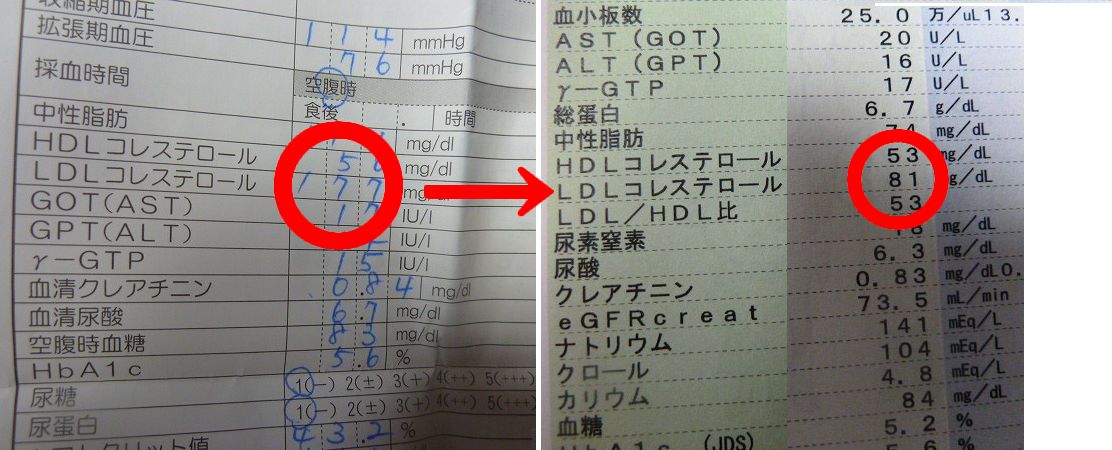 収縮期血圧 114 mmHg
拡張期血圧 76 mmHg
採血時間 空腹時
食後 . 時間
中性脂肪 mg/dl
HDLコレステロール 56 mg/dl
LDLコレステロール 177 mg/dl
GOT(AST) 17 IU/l
GPT(ALT) IU/l
γ-GTP 15 IU/l
血清クレアチニン 0.84 mg/dl
血清尿酸 6.7 mg/dl
空腹時血糖 83 mg/dl
HbA1c 5.6 %
尿糖 1(-) 2(±) 3(+) 4(++) 5(+++)
尿蛋白 1(-) 2(±) 3(+) 4(++) 5(+++)
ヘマトクリット値 43.2 %
血小板数 25.0 万/uL13.
AST(GOT) 20 U/L
ALT(GPT) 16 U/L
γ-GTP 17 U/L
総蛋白 6.7 g/dL
中性脂肪 74 mg/dL
HDLコレステロール 53 mg/dL
LDLコレステロール 81 mg/dL
LDL/HDL比 53
尿素窒素 18 mg/dL
尿酸 6.3 mg/dL
クレアチニン 0.83 mg/dL0.
eGFRcreat 73.5 mL/min
ナトリウム 141 mEq/L
クロール 104 mEq/L
カリウム 4.8 mEq/L
血糖 84 mg/dL
HbA1c (JDS) 5.2 %
5.6 %